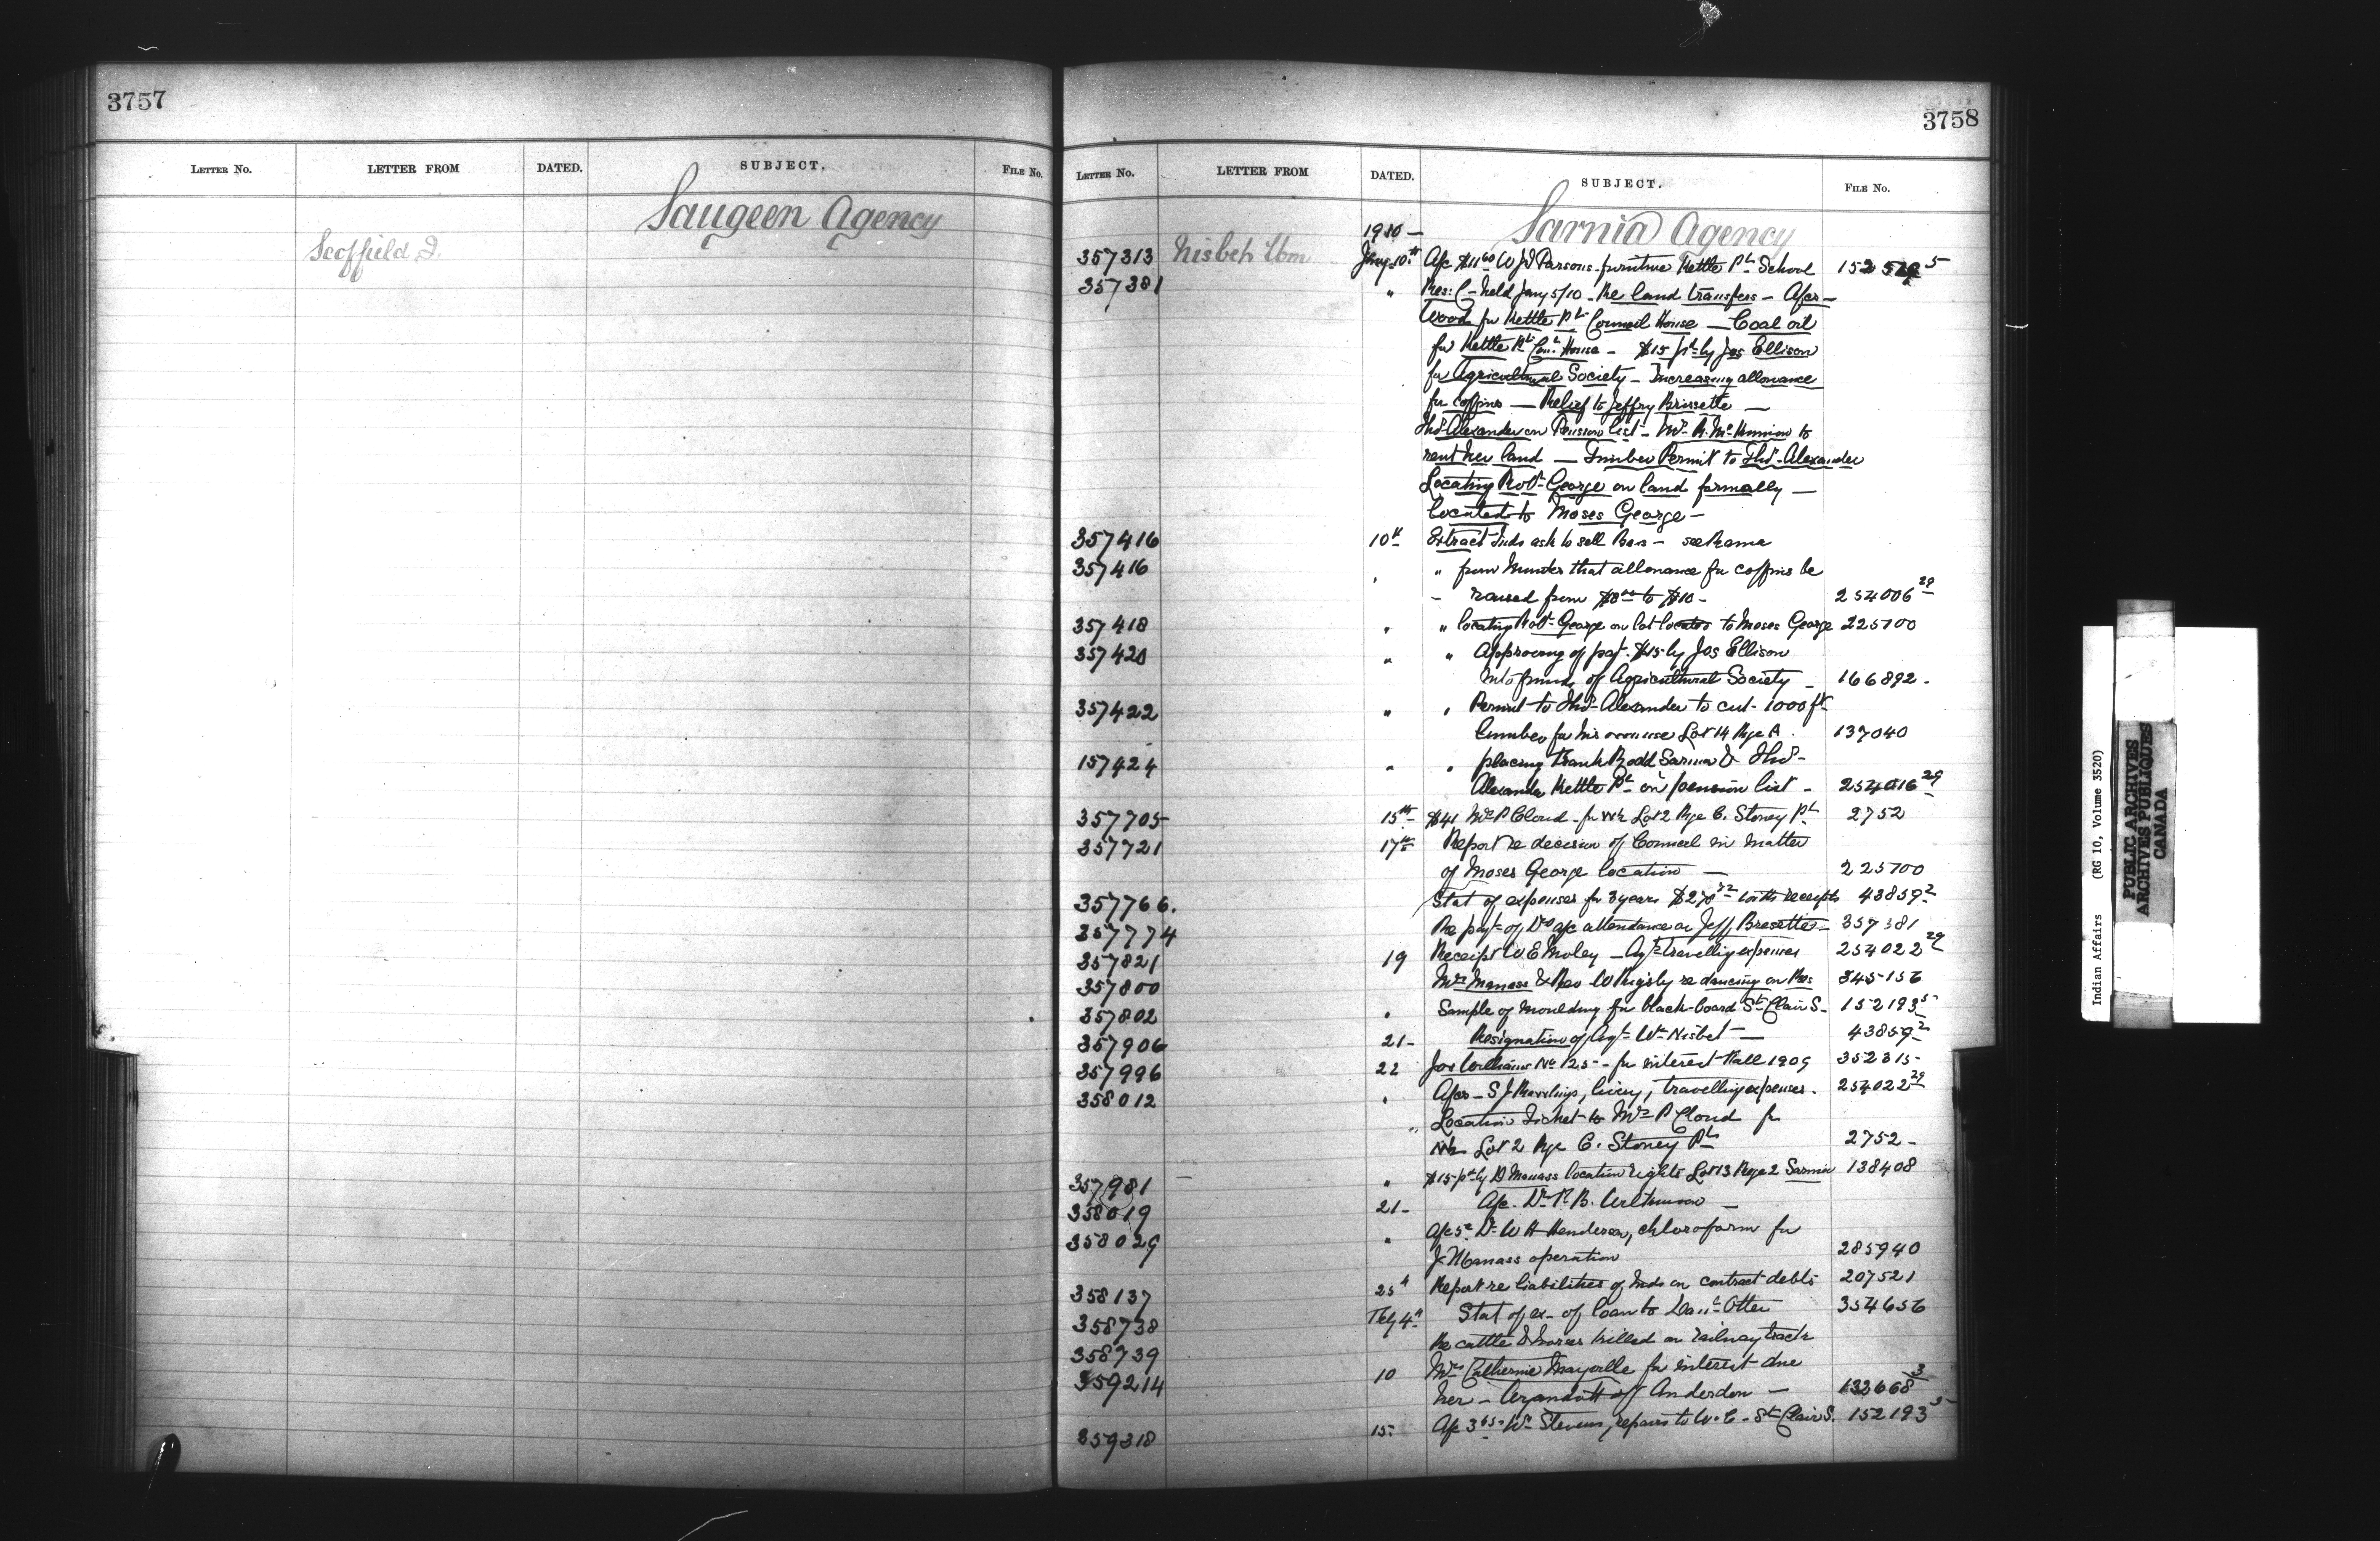 3757
LETTER No. LETTER FROM DATED. SUBJECT. FILE No.
Saugeen Agency
Scoffield J.
3758
LETTER No. LETTER FROM DATED. SUBJECT. FILE No.
1910 — Sarnia Agency
357313 Nisbet Wm Jany 10th A/c $11.60 W J Parsons furniture Kettle Pt School 152
357381 " Res: C- held Jany 5/10 - Re land transfers - A/cs -
Wood for Kettle Pt Council House — Coal oil
for Kettle Pt Coun. House - $15 pd by Jos Ellison
for Agricultural Society - Increasing allowance
for coffins — Relief to Jeffry Brissette —
Thos Alexander on Pension list - to
rent her land — Timber Permit to Thos Alexander
Locating Robt George on land formally —
located to Moses George -
357416 10th Extract Inds ask to sell - see Rama
357416 " from that allowance for coffins be
raised from $8.00 to $10 - 254006 29
357418 " " locating Robt George on lot located to Moses George 225700
357420 " " Approving of pay't $15 by Jos Ellison
into funds of Agricultural Society - 166892 -
357422 " " Permit to Thos Alexander to cut 1000 ft
lumber for his own use Lot 14 Rge A. 137040
157424 " " placing Frank Rodd Sarnia & Thos
Alexander Kettle Pt on pension list - 254016 29
357705 15th $41 Mrs P Cloud - for Lot 2 Rge C. Stoney Pt 2752
357721 17th Report re decision of Council in matter
of Moses George location — 225700
357766. Stat of expenses for 3 years with receipts 43859 2
357774 Re pay't of Drs a/c attendance on Jeff Bressette - 357381
357821 19 Receipt W E - Agt travelling expenses 254022 29
357800 Mrs Manass & Rev W re dancing on Res: 345156
357802 " Sample of moulding for black-board St Clair S. 152193 5
357906 21 - Resignation of Agt Wm Nisbet — 43859 2
357996 22 Jos Williams No 125 - for interest Fall 1909 352315 -
358012 " A/cs - S J, livery, travelling expenses. 254022 29
" Location Ticket to Mrs P Cloud for
Lot 2 Rge C. Stoney Pt 2752 -
357981 " $15 pd by D Manass location rights Lot 13 Rge 2 Sarnia 138408
358019 21 - A/c. Dr R. B.
358029 " A/c 5. Dr W H Henderson, chloroform for
J Manass operation 285940
358137 25th Report re liabilities of Inds on contract debts 207521
358738 Feby 4th Stat of ex- of loan to Danl Otter 354656
358739 Re cattle & horses killed on railway track
359214 10 Mrs Catherine Mayville for interest due
her - Wyandott of Anderdon — 132668 3
359318 15 - A/c Wm Stevens, repairs to W.C. - St Clair S. 152193 5
Indian Affairs (RG 10, Volume 3520)
PUBLIC ARCHIVES
ARCHIVES PUBLIQUES
CANADA